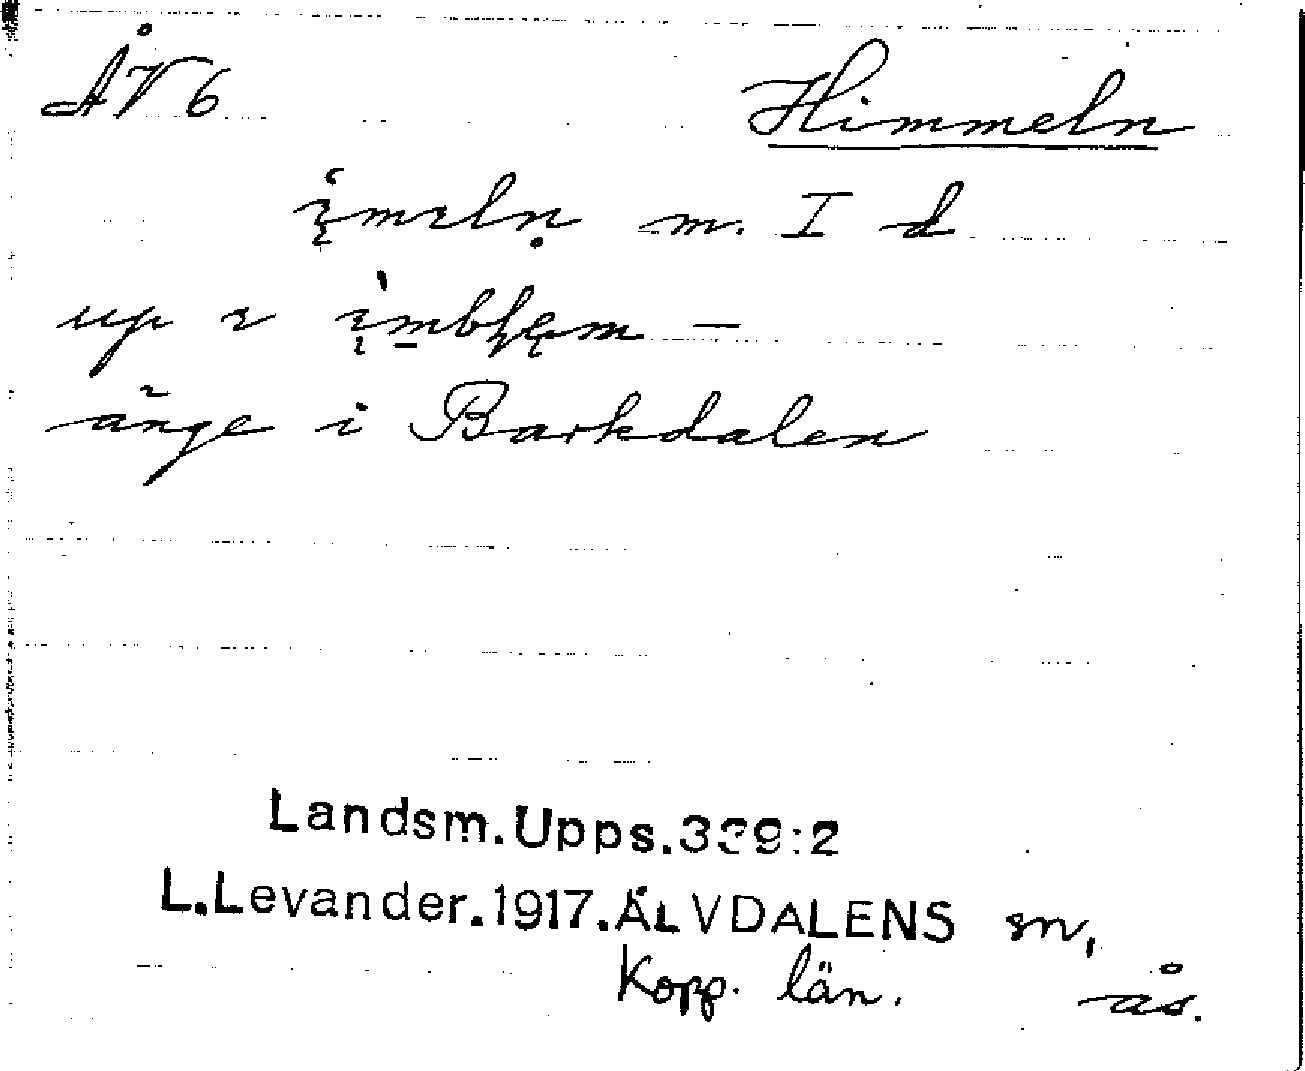 ÅV6 Himmeln
m. I d
up
änge i Barkdalen
Landsm.Upps.339:2
L.Levander.1917.ÄLVDALENS sn,
Kopp. län. ås.